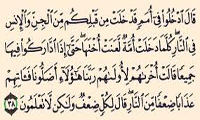 قَالَ ٱدْخُلُوا۟ فِىٓ أُمَمٍ قَدْ خَلَتْ مِن قَبْلِكُم مِّنَ ٱلْجِنِّ وَٱلْإِنسِ
فِى ٱلنَّارِ كُلَّمَا دَخَلَتْ أُمَّةٌ لَّعَنَتْ أُخْتَهَا حَتَّىٰٓ إِذَا ٱدَّارَكُوا۟ فِيهَا
جَمِيعًا قَالَتْ أُخْرَىٰهُمْ لِأُولَىٰهُمْ رَبَّنَا هَٰٓؤُلَآءِ أَضَلُّونَا فَـَٔاتِهِمْ
عَذَابًا ضِعْفًا مِّنَ ٱلنَّارِ قَالَ لِكُلٍّ ضِعْفٌ وَلَٰكِن لَّا تَعْلَمُونَ ٣٨